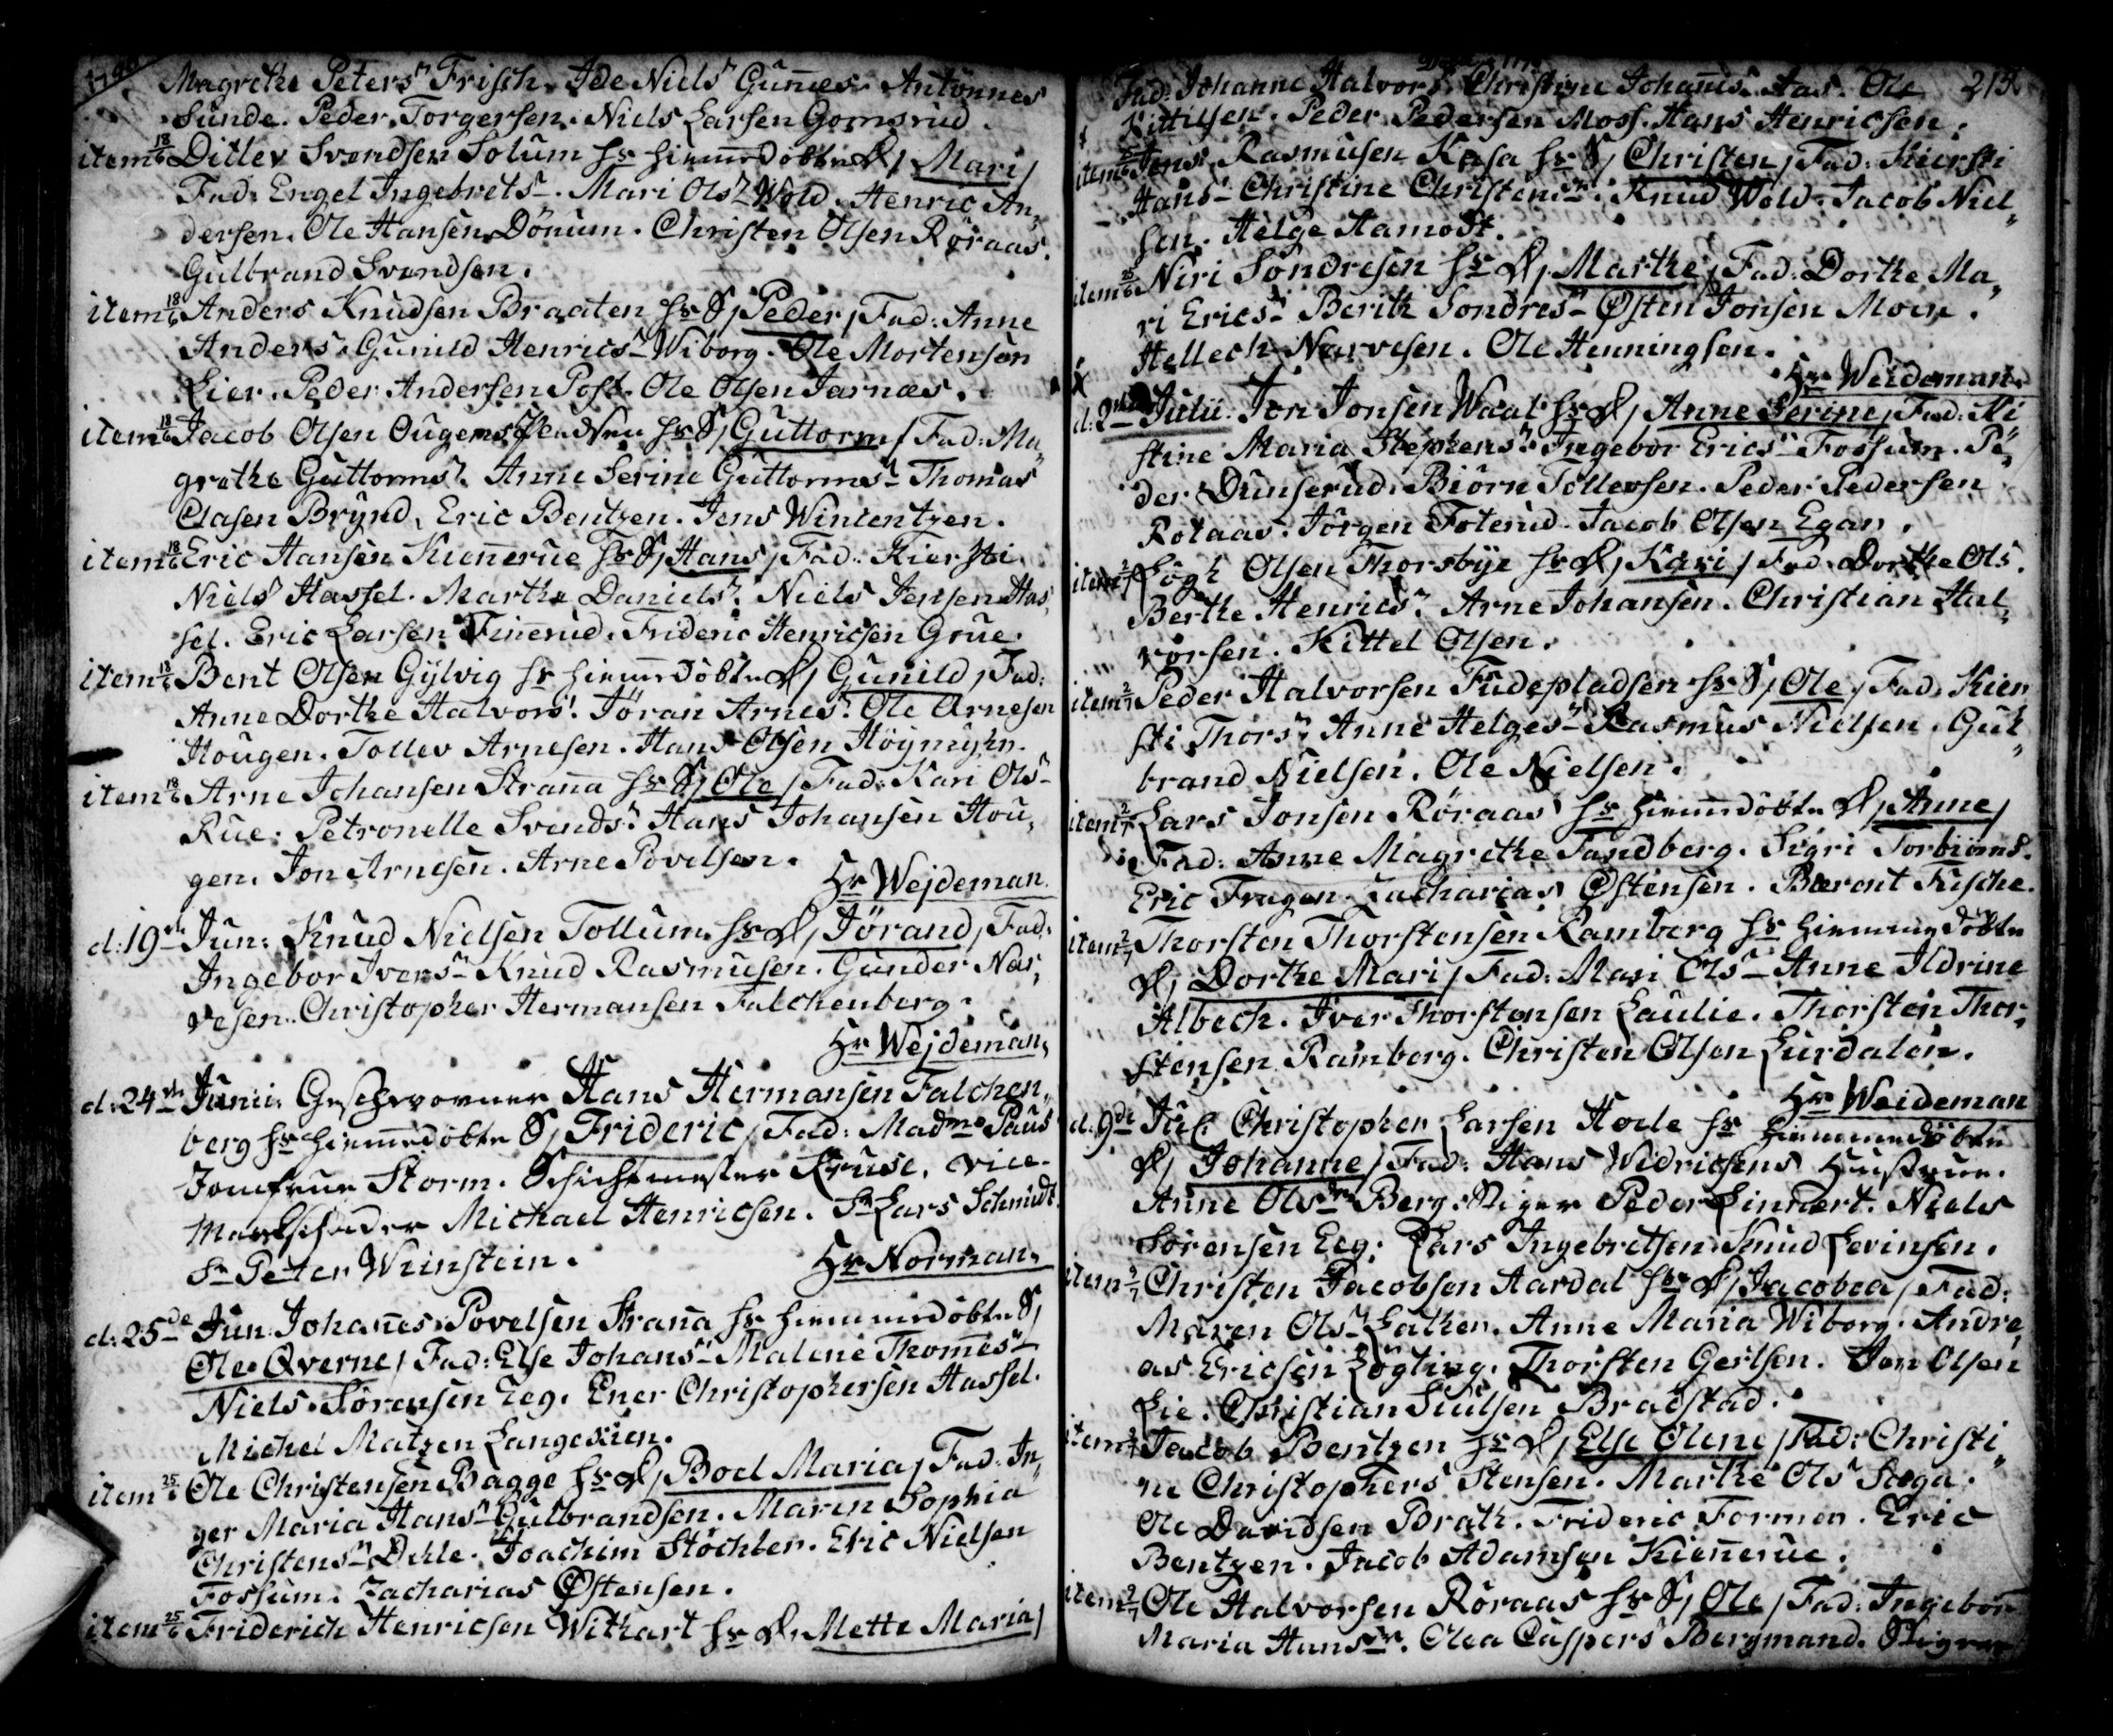 Magrethe Peters Frisch. Ide Niels Gunnes. Antonnes
Sunde. Peder Torgersen. Niels Larsen Gomsrud.
item 18/6 Ditlev Svendsen Solum hr hiemmedöbte D/ Mari/
Fad: Engel Ingebrets. Mari Ols Wold. Henric An,,
dersen. Ole Hansen Dönum. Christen Olsen Röraas.
Gulbrand Svendsen.
item 18/6 Anders Knudsen Braaten hr S/ Peder/ Fad: Anne
Anders. Gunild Henrics Wiborg. Ole Mortensen
Lier. Peder Andersen Post. Ole Olsen Jarnæs.
item 18/6 Jacob Olsen hr S/ Guttorm/ Fad: Ma,,
grethe Guttorms. Anne Serine Guttorms Thomas
Clasen Brynd. Eric Bentzen. Jens Wintentzen.
item 18/6 Eric Hansen Kiennerue hr S/ Hans/ Fad: Kiersti
Niels Hassel. Marthe Daniels. Niels Jensen Has,,
sel. Eric Larsen Finnerud. Frideric Henricsen Grue.
item 18/6 Bent Olsen Gylvig hr hiemmedöbte D/ Gunild/ Fad:
Anne Dorthe Halvors. Jöran Arnes. Ole Arnesen
Hougen. Tollev Arnesen. Hans Olsen Höymyhr.
item 18/6 Arne Johansen Stranna hr S/ Ole/ Fad: Kari Ols
Rue. Petronelle Svends. Hans Johansen Hou,,
gen. Jon Arnesen. Arne Povelsen.
Hr Wejdeman.
d: 19de Jun: Knud Nielsen Tollum hr D/ Jörand/ Fad:
Ingebor Ivers Knud Rasmusen. Gunder Nar,,
vesen. Christopher Hermansen Falchenberg.
Hr Wejdeman.
d: 24de Junii. Geschworner Hans Hermansen Falchen,,
berg hr hiemmedöbte S/ Frideric/ Fad: Madme Paus
Jomfrue Storm. Schichtmester Kruse. Vice-
Markscheder Michael Henricsen. Sr Lars Schmidt.
Sr Peter Weinstein.
Hr Norman.
d: 25de Jun. Johannes Povelsen Stranna hr hiemmedöbte S/
Ole Qverne/ Fad: Else Johans Malene Thomes
Niels Sörensen Eeg. Ener Christophersen Hassel.
Michel Matzen Langesien.
item 25/6 Ole Christensen Bagge hr D/ Boel Maria/ Fad: In,,
ger Maria Hans Gulbrandsen. Maren Sophia
Christens Dehle. Joachim Stöchler. Eric Nielsen
Fossum. Zacharias Östensen.
item 25/6 Friderich Henricsen Withart hr D/ Mette Maria/
215.
Fad: Johanne Halvors. Christine Johannis. Aas. Ole
Kittilsen. Peder Pedersen Moss. Hans Henricsen.
item Jens Rasmusen Kasa hr S/ Christen/ Fad: Kiersti
Hans Christine Christens. Knud Wold. Jacob Niel,,
sen. Helge Hamost.
item 25/6 Niri Söndresen hr D/ Marthe/ Fad: Dorthe Ma,,
ri Erics Berith Sondres Östen Jonsen Moen.
Hellech Narvesen. Ole Henningsen.
Hr Weideman.
d: 2den Julii. Jon Jonsen Waal hr D/ Anne Serine/ Fad: Ki
stine Maria Stephens. Ingebor Erics Fossum. Pe,,
der Dunserud. Biörn Tollevsen. Peder Pedersen
Rolaas. Jörgen Foterud. Jacob Olsen Egan.
item 2/7 Olsen Thorsbye hr D/ Kari/ Fad. Dorthe Ols.
Berthe Henrics. Arne Johansen. Christian Hal,,
vorsen. Kittel Olsen.
item 2/7 Peder Halvorsen Fudepladsen hr S/ Ole/ Fad. Kier
sti Thors. Anne Helges Rasmus Nielsen. Gul,,
brand Nielsen. Ole Nielsen.
item 2/7 Lars Jonsen Röraas hr hiemmedöbte D/ Anne/
Fad: Anne Magrethe Sandberg. Sigri Torbiörns.
Eric Zacharias Östensen. Berent Fische.
item 2/7 Thorsten Thorstensen Ramberg hr hiemmedöbte
D/ Dorthe Mari/ Fad: Mari Ols Anne Ildrine
Albech. Iver Thorstensen Laulie. Thorsten Thor,,
stensen Ramberg. Christen Olsen Lurdalen.
Hr Weideman
d: 9de Jul: Christopher Larsen Hode hr hiemmedöbte
D/ Johanne/ Fad: Hans Widricsens Hustrue.
Anne Ols Berg. Stiger Peder Linnert. Niels
Sörensen Eeg. Lars Ingebretsen. Knud Levinsen.
item 9/7 Christen Jacobsen Aardal hr D/ Jacobea/ Fad:
Maren Ols Lather. Anne Maria Wiborg. Andre,,
as Ericsen Lögting. Thorsten Gertsen. Jon Olsen
Lie. Christian Siulsen Bradstad.
item 9/7 Jacob Bentzen hr D/ Else Olene/ Fad: Christi,,
ne Christophers Stensen. Marthe Ols Saga.
Ole Davidsen Brath. Frideric Formen. Eric
Bentzen. Jacob Adamsen Kiennerue.
item 9/7 Ole Halvorsen Röraas hr S/ Ole/ Fad: Ingebor
Maria Hans. Olea Caspers Bergmand. Stiger